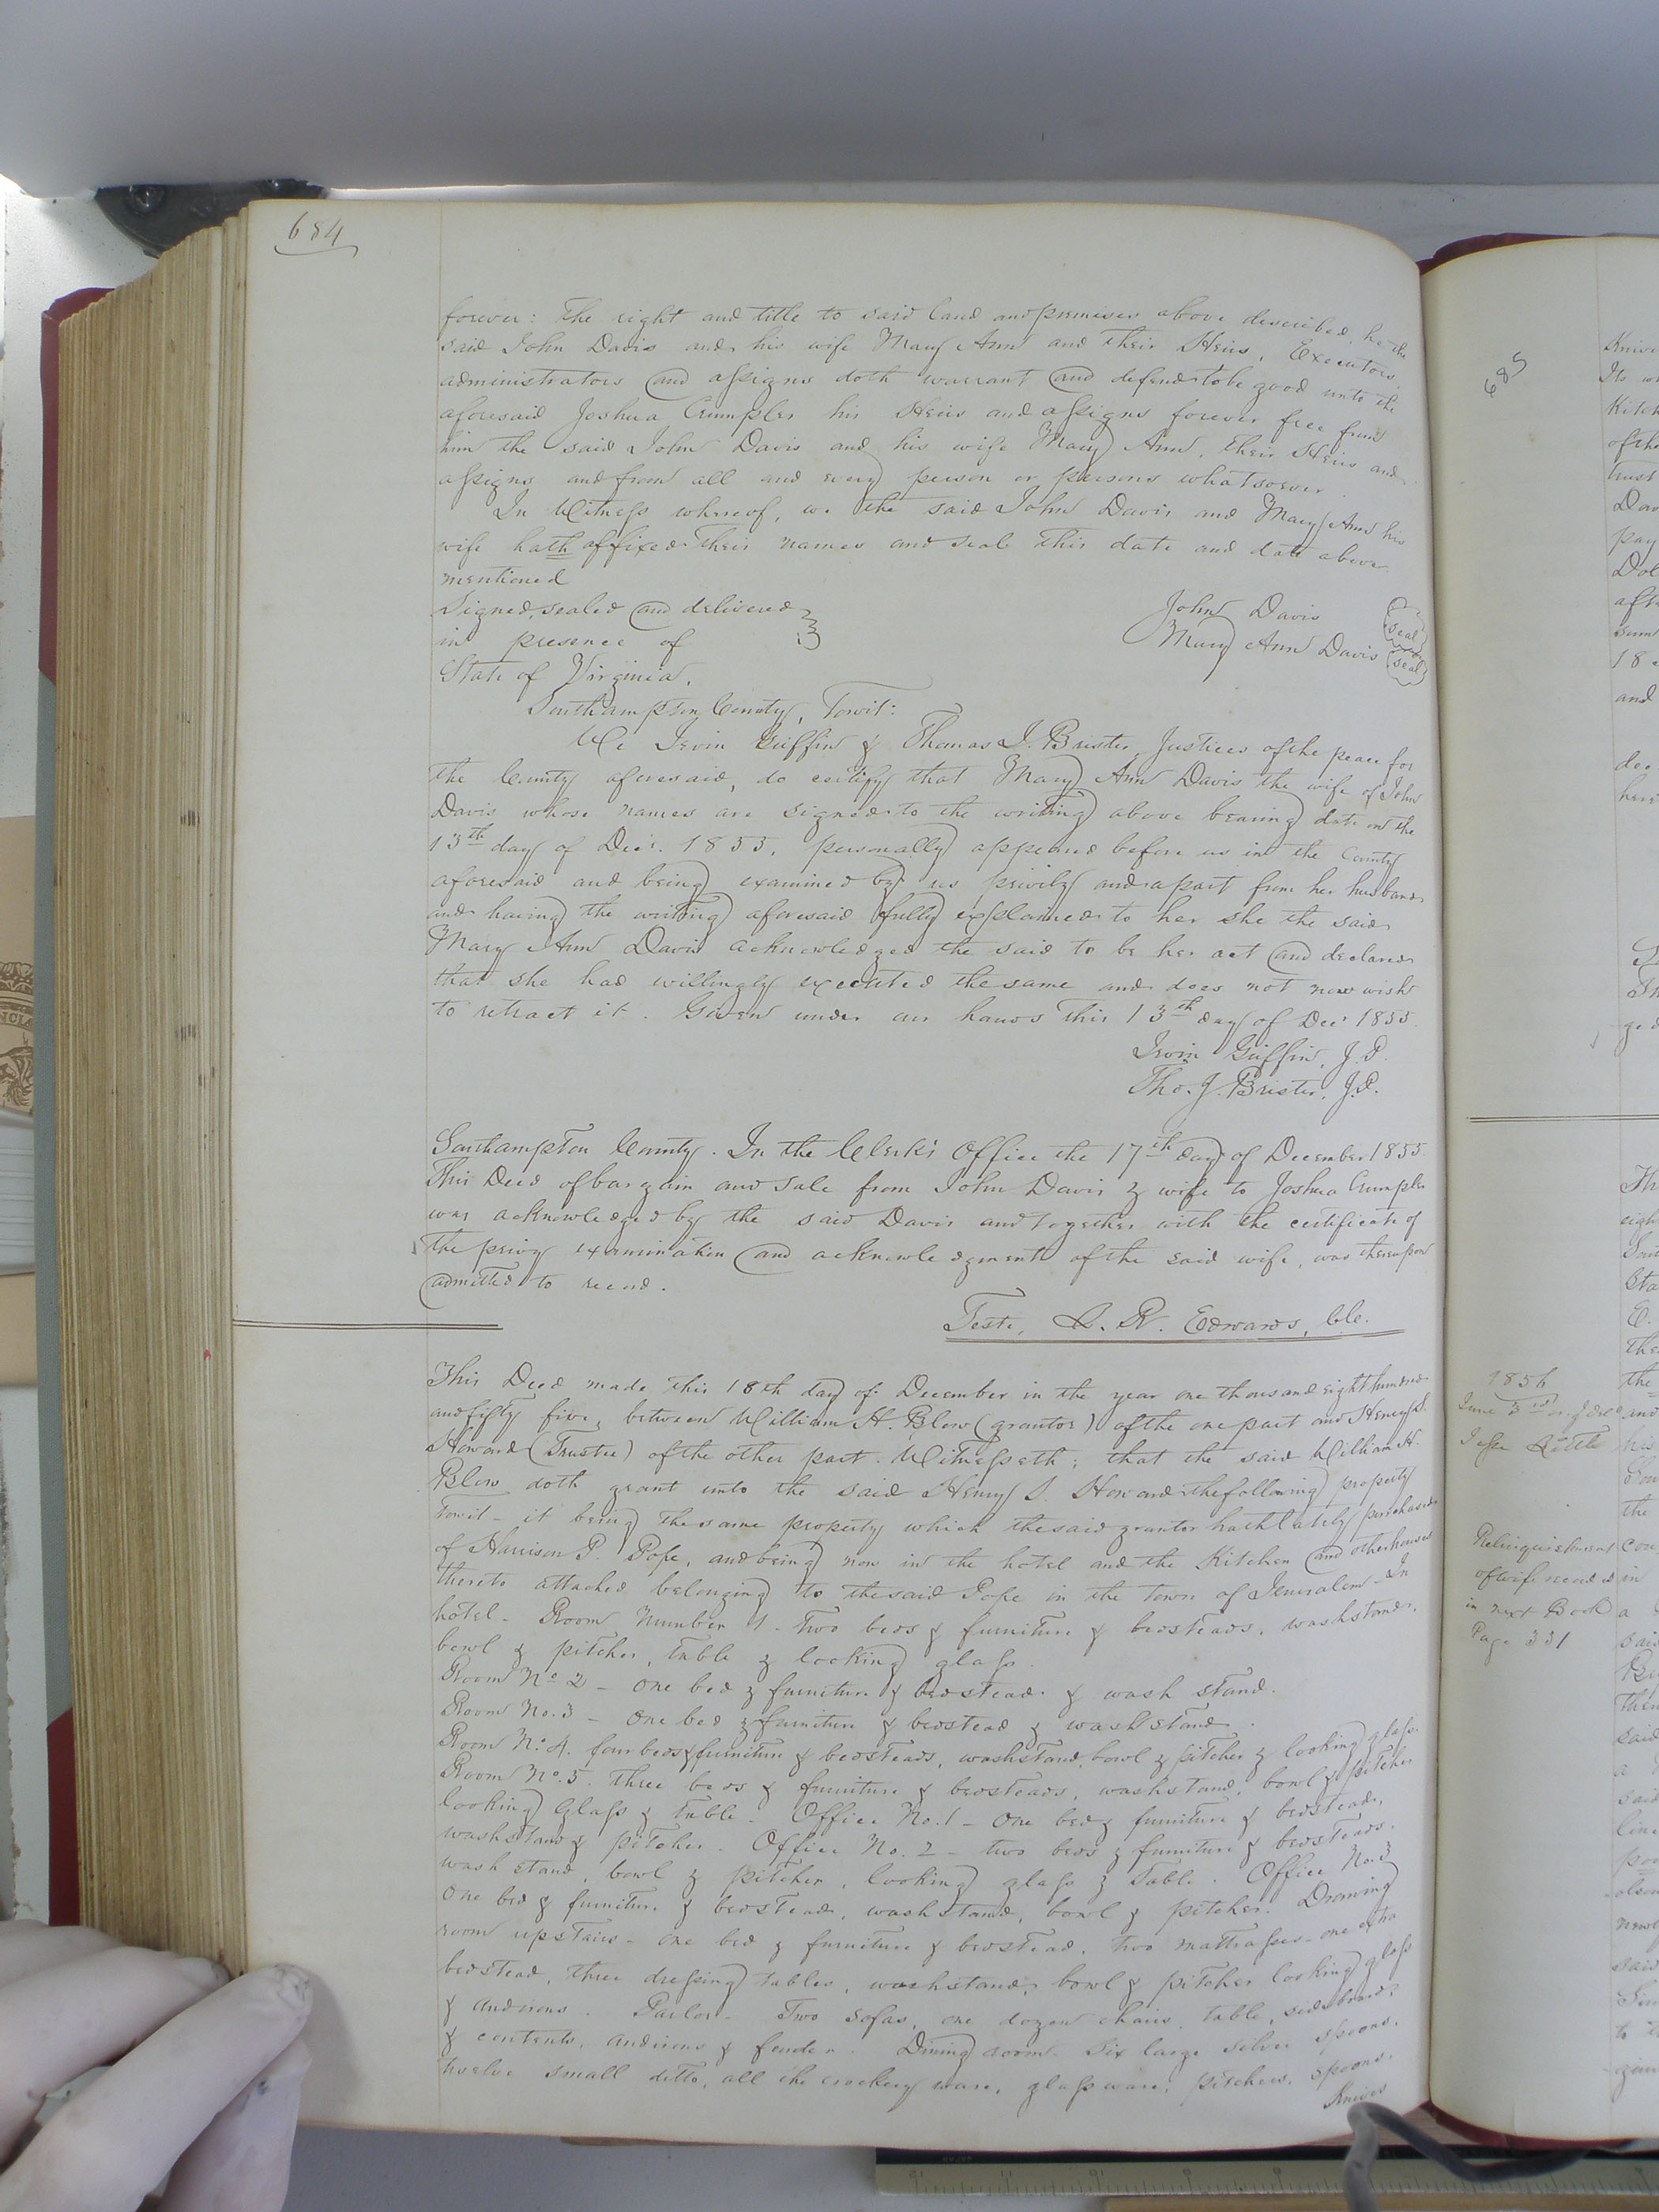 684
forever: The right and title to said land and premises above described he the
said John Davis and his wife Mary Ann and their Heirs, Executors
administrators and assigns doth warrant and defend to be good unto the
aforesaid Joshua Crumpler his Heirs and assigns forever free from
him the said John Davis and his wife Mary Ann, their Heirs and
assigns and from all and every person or persons whatsoever.
In Witness whereof, we the said John Davis and Mary Ann his
wife hath affixed their names and seals this date and date above
mentioned
Signed, sealed and delivered
in presence of
John Davis seal
Mary Ann Davis seal
State of Virginia,
Southampton County, Towit:
We Irvin Griffin & Thomas J. Brister, Justices of the peace for
the County aforesaid, do certify that Mary Ann Davis the wife of John
Davis whose names are signed to the writing above bearing date on the
13th day of Decr. 1855, personally appeared before us in the County
aforesaid and being examined by us privily and apart from her husband
and having the writing aforesaid fully explained to her she the said
Mary Ann Davis acknowledged the said to be her act and declared
that she had willingly executed the same and does not now wish
to retract it. Given under our hands this 13th day of Decr 1855.
Irvin Griffin, J.P.
Tho. J. Brister, J.P.
Southampton County. In the Clerk's Office the 17th day of December 1855.
This Deed of bargain and sale from John Davis & wife to Joshua Crumpler
was acknowledged by the said Davis and together with the certificate of
the privy examination and acknowledgment of the said wife, was thereupon
admitted to record.
Teste, L. R. Edwards, Clc.
This Deed made this 18th day of December in the year one thousand eight hundred
and fifty five, between William H. Blow (grantor) of the one part and Henry S.
Howard (Trustee) of the other part. Witnesseth; that the said William H.
Blow doth grant unto the said Henry S. Howard the following property
Towit - it being the same property which the said grantor hath lately purchased
of Harrison P. Pope, and being now in the hotel and the Kitchen and other houses
thereto attached belonging to the said Pope in the town of Jerusalem - In
hotel - Room Number 1 - two beds & furniture & bedsteads, washstand,
bowl & pitcher, table & looking glass.
Room No 2 - one bed & furniture & bedstead & wash stand.
Room No. 3 - one bed & furniture & bedstead & washstand.
Room No. 4. four beds & furniture & bedsteads, washstand, bowl & pitcher & looking glass.
Room No. 5. three beds & furniture & bedsteads, washstand, bowl & pitcher
looking glass & table. Office No. 1 - one bed & furniture & bedstead,
washstand & pitcher. Office No. 2 - two beds & furniture & bedsteads.
wash stand, bowl & pitcher, looking glass & table. Office No. 3
one bed & furniture & bedstead, washstand, bowl & pitcher. Drawing
room upstairs - one bed & furniture & bedstead, two mattrasses - one extra
bedstead, three dressing tables, washstand, bowl & pitcher looking glass
& andirons. Parlor - Two sofas, one dozen chairs, table, sideboard
& contents, andirons & fender. Dining room - Six large silver spoons.
twelve small ditto, all the crockery ware, glass ware, pitchers, spoons,
Knives
685
1856
June 3rd
Jesse Little
Relinquishment
of wife recd
in next Book
Page 331